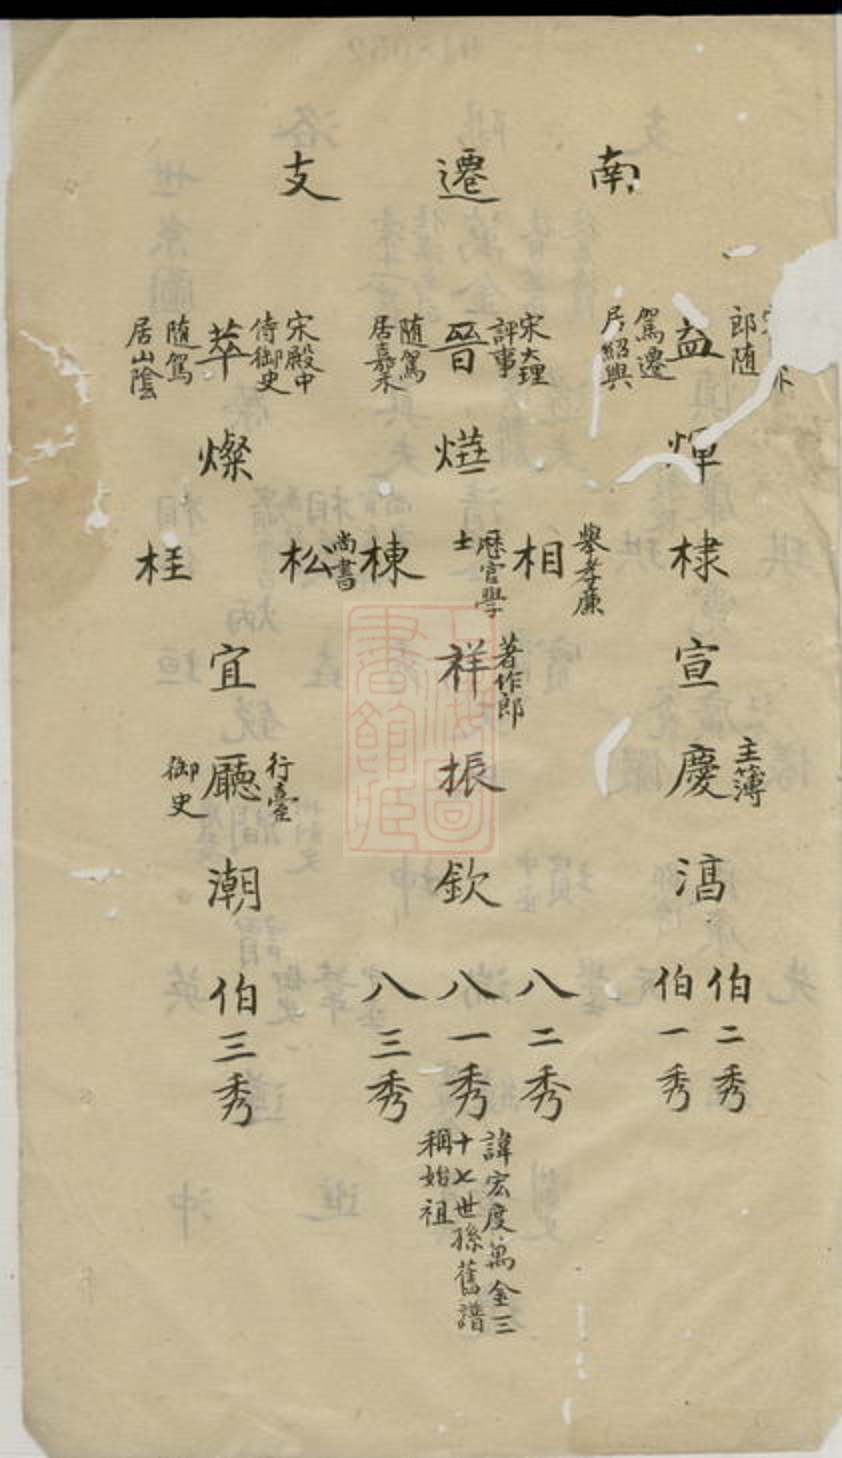 南遷支
郎随
益
駕遷
居紹興
煇
棣
宣
主簿
慶
滈
伯二秀
伯一秀
宋大理
評事
晉
隨駕
居嘉禾
爗
舉孝廉
相
歷官學
士
棟
尚書
松
著作郎
祥
振
欽
八二秀
八一秀
八三秀
諱宏度萬金三
十七世孫舊譜
稱始祖
宋殿中
侍御史
萃
隨駕
居山陰
燦
桂
宜
行臺
廳
御史
潮
伯三秀